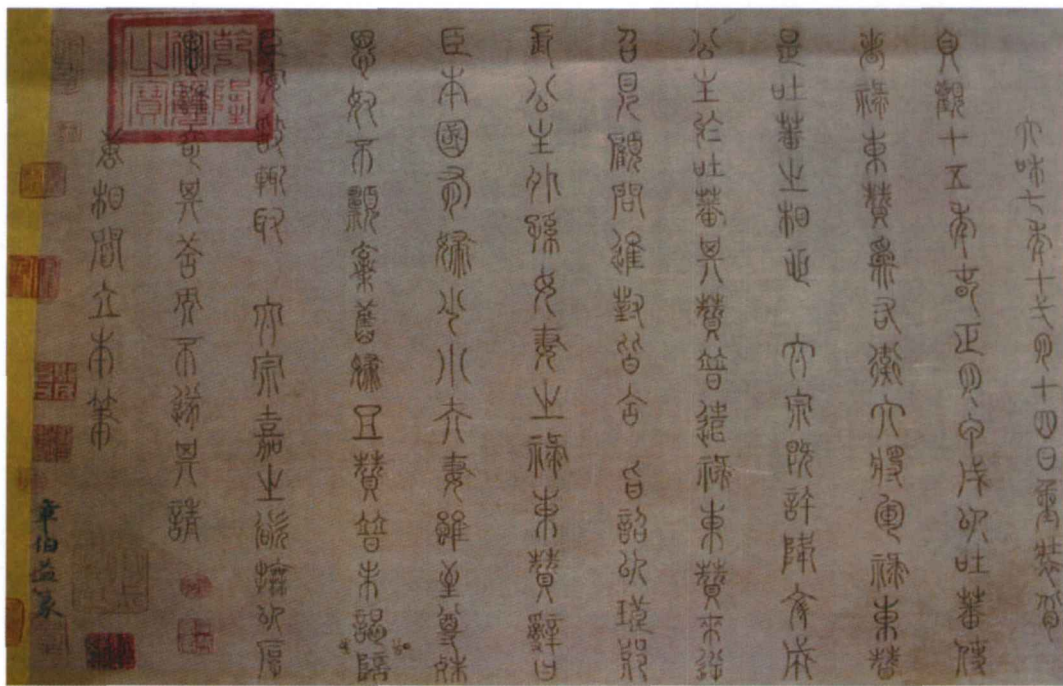 太和七年十一月十四日重裝背
貞觀十五年春正月甲戌以吐蕃使
者祿東贊為右衛大將軍祿東贊
是吐蕃之相也 太宗既許降文成
公主於吐蕃其贊普遣祿東贊來逆
召見顧問進對皆合 旨詔以瑯琊
長公主外孫女妻之祿東贊辭曰
臣本國有婦少小夫妻雖至尊殊
恩奴不願棄舊婦且贊普未謁陛
臣安敢輒取 太宗嘉之欲撫以厚
恩雖奇其答而不遂其請
唐相閻立本筆
章伯益篆
乾隆御覽之寶